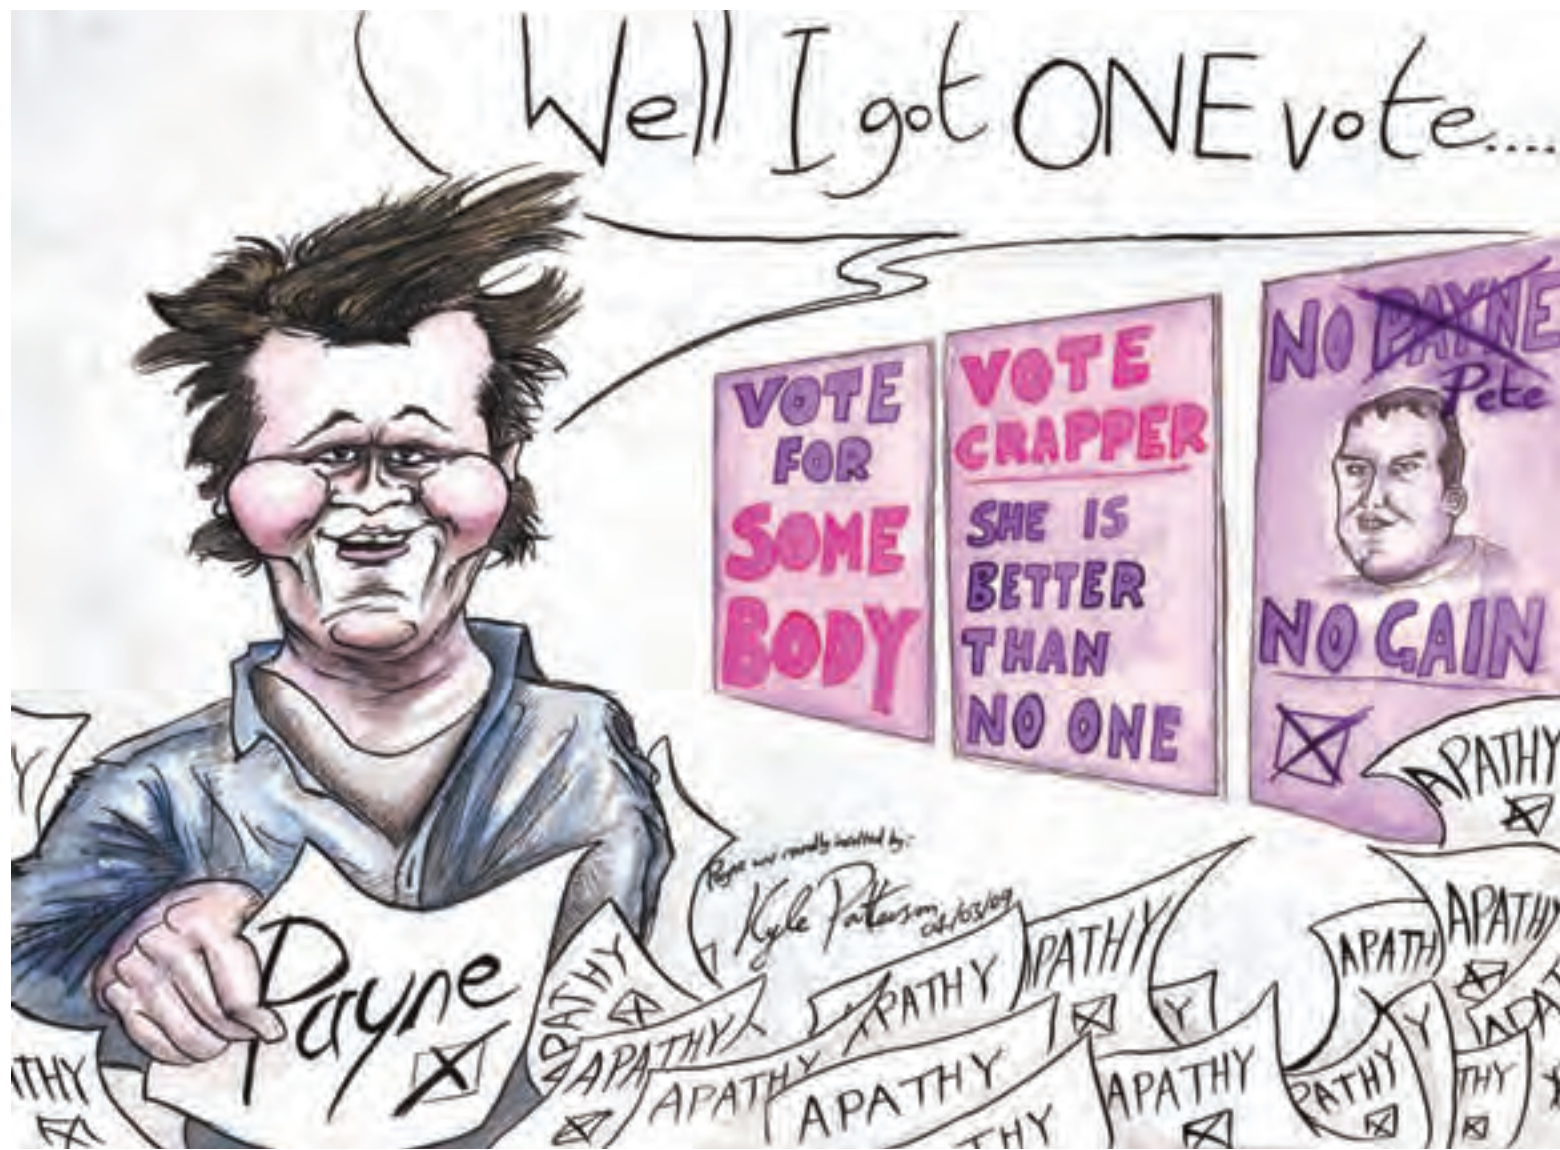 Well I got ONE vote....
VOTE
FOR
SOME
BODY
VOTE
CRAPPER
SHE IS
BETTER
THAN
NO ONE
NO PAYNE
Pete
NO GAIN
Payne was by:-
Kyle Patterson
04/03/09
Payne
Y
ATHY
APATHY
APATHY
APATHY
APATHY
APATHY
APATHY
APATHY
APATH
APATHY
APATHY
Y
PATHY
Y
THY
APA
THY